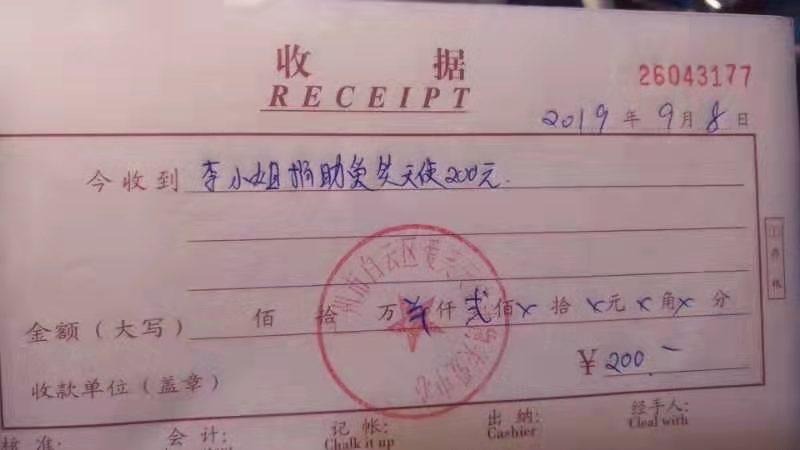 收 据
RECEIPT
26043177
2019 年 9 月 8 日
今收到 李小姐捐助 天使200元.
金额（大写） 佰 拾 万 仟 贰 佰 x 拾 x 元 x 角 x 分
收款单位（盖章）
¥ 200.—
州市白云区爱
核 准:
会 计:
记 帐:
Chalk it up
出 纳:
Cashier
经手人:
Cleal with